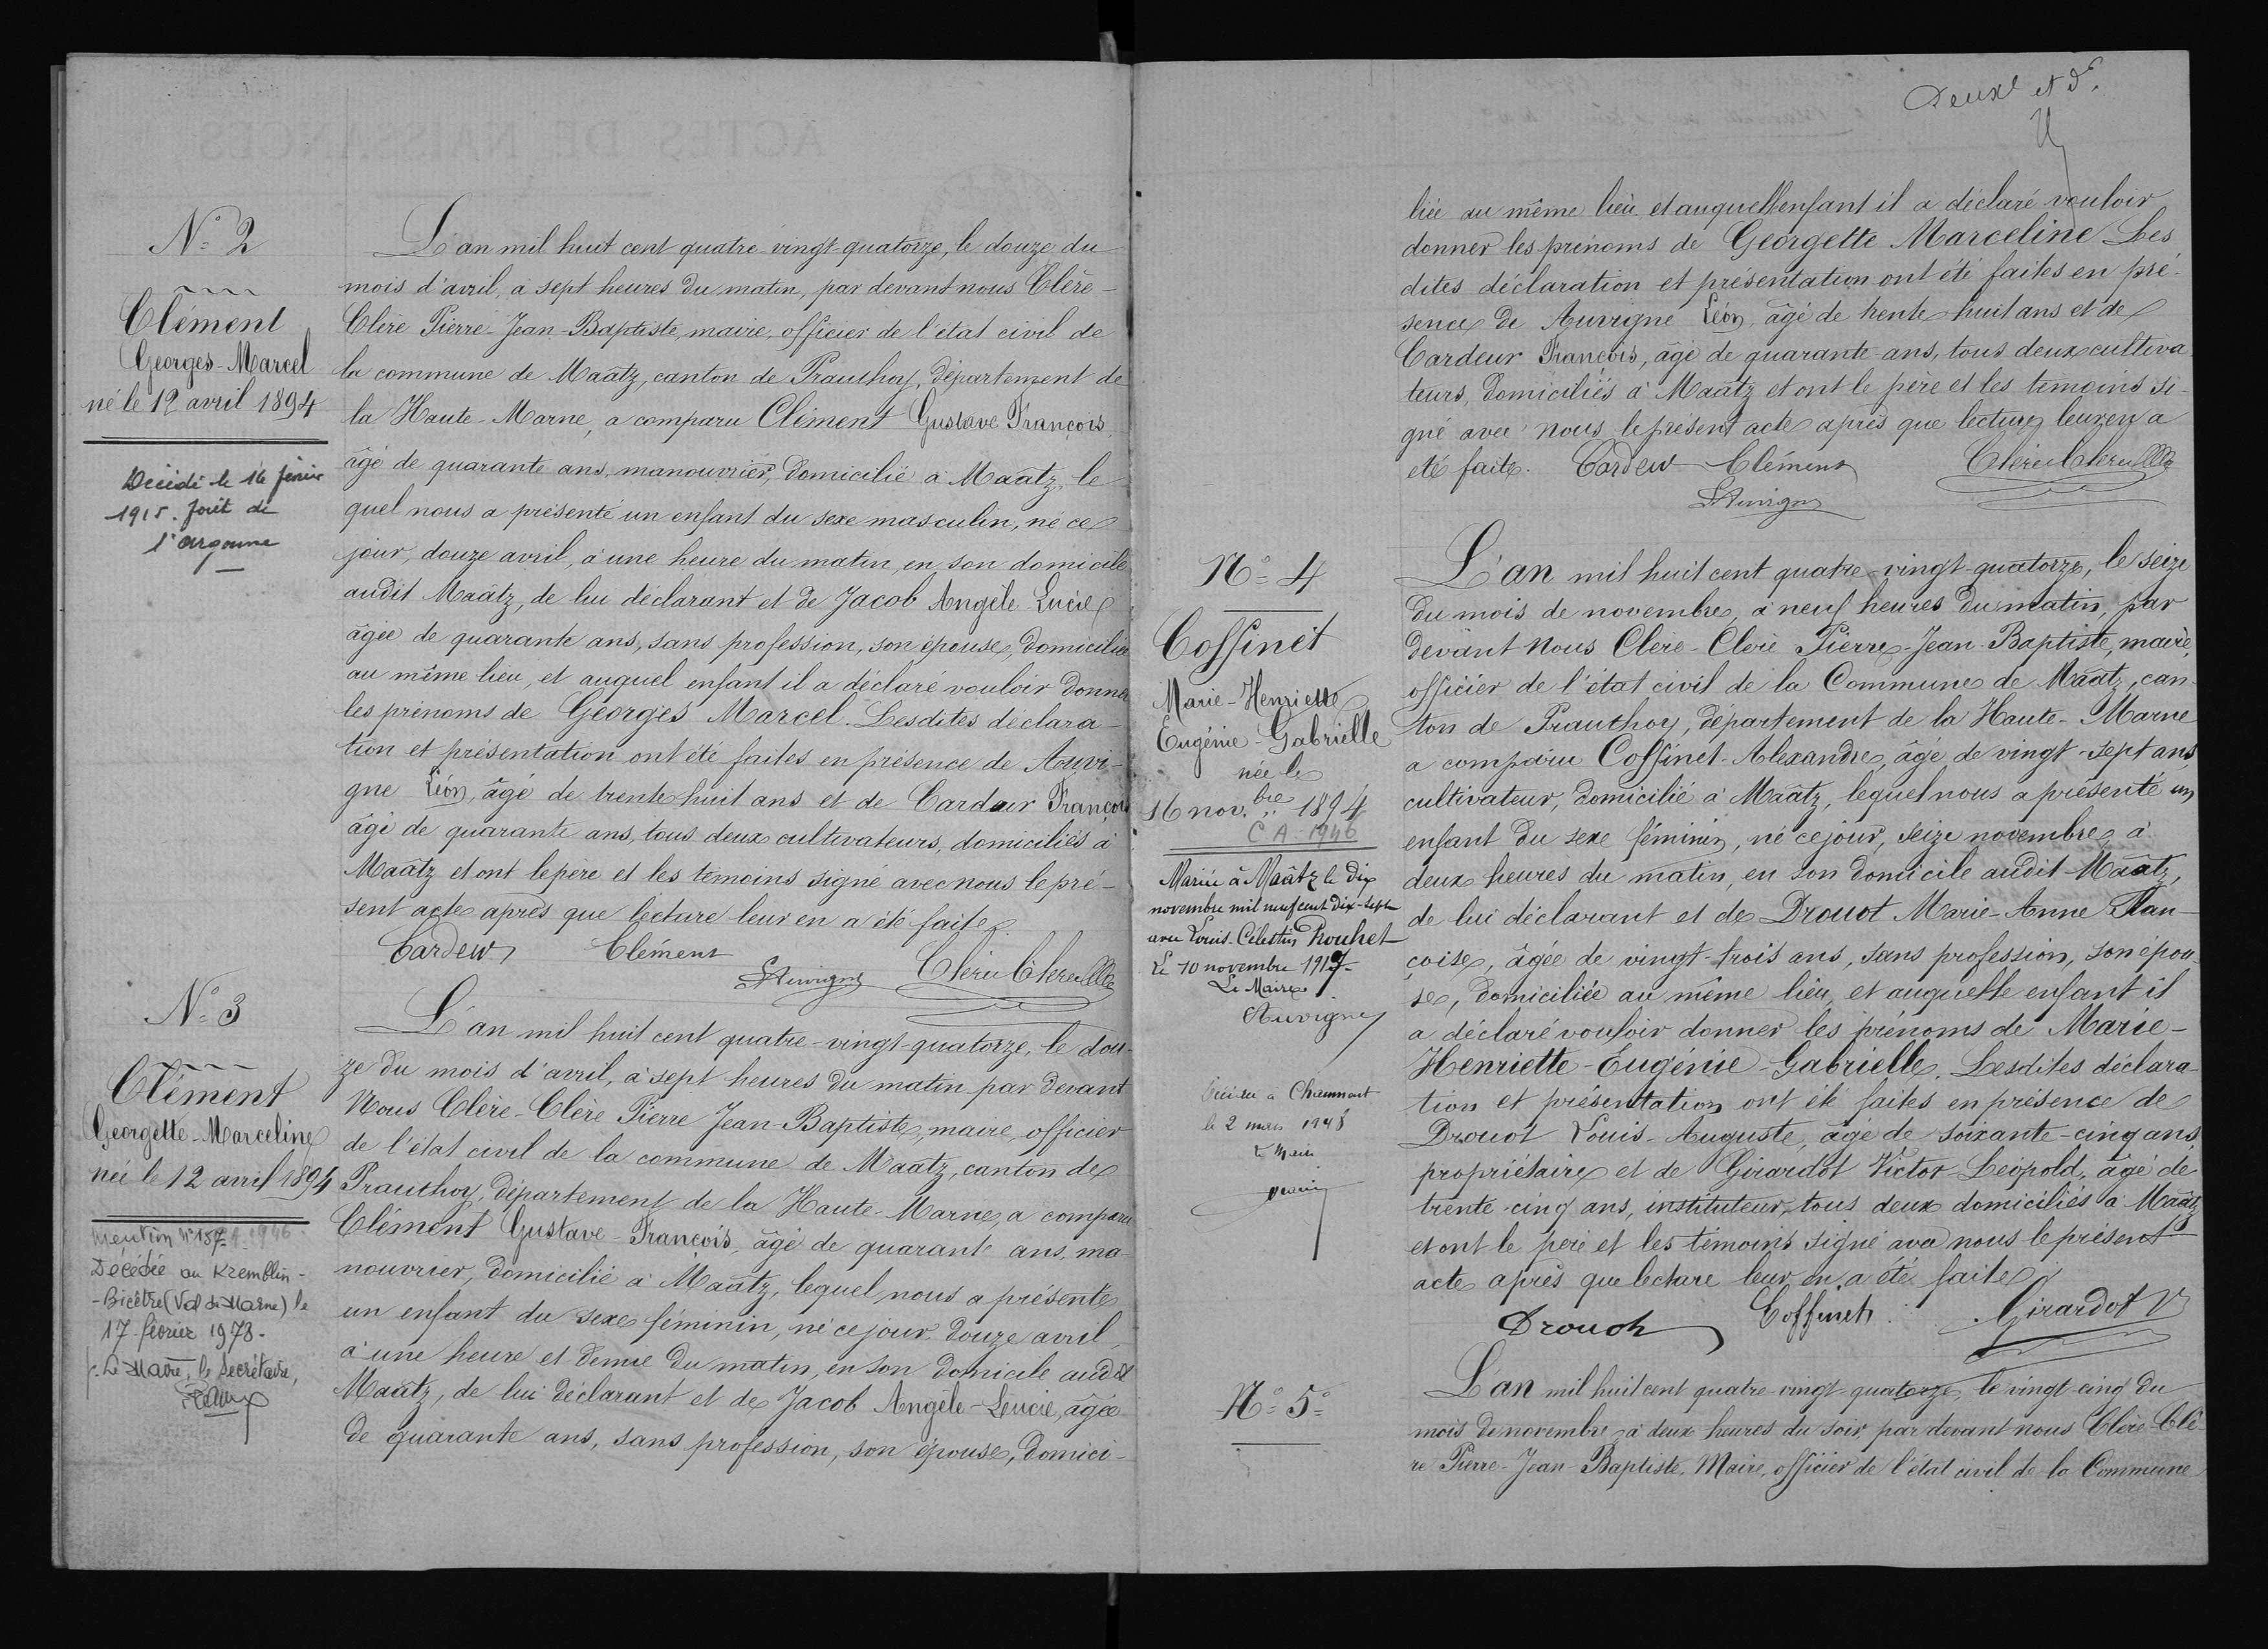 N° 2
Clément
Georges-Marcel
né le 12 avril 1894
Décédé le 16 février
1915. forêt de
l'argonne
L'an mil huit cent quatre-vingt quatorze, le douze du
mois d'avril, à sept heures du matin, par devant nous Clère-
Clère Pierre-Jean-Baptiste, maire, officier de l'état civil de
la commune de Maâtz, canton de Prauthoy, département de
la Haute-Marne, a comparu Clément Gustave François
âgé de quarante ans, manouvrier, domicilié à Maâtz, le
quel nous a présenté un enfant du sexe masculin, né ce
jour, douze avril, à une heure du matin, en son domicile
audit Maâtz, de lui déclarant et de Jacob Angèle-Lucie
âgée de quarante ans, sans profession, son épouse, domiciliée
au même lieu, et auquel enfant il a déclaré vouloir donner
les prénoms de Georges Marcel. Lesdites déclara-
tion et présentation ont été faites en présence de Auvi-
gne Léon, âgé de trente huit ans et de Cardeur François
âgé de quarante ans, tous deux cultivateurs, domiciliés à
Maâtz et ont le père et les témoins signé avec nous le pré-
sent acte après que lecture leur en a été faite.
Cardeur Clément
LAuvigne Clère Clère
N° 3
Clément
Georgette-Marceline
née le 12 avril 1894
mention N° 157 A. 1946
Décédée au Kremblin-
-Bicêtre (Val de Marne) le
17 février 1978-
p. Le Maire, le secrétaire,
L'an mil huit cent quatre-vingt-quatorze, le dou-
ze du mois d'avril, à sept heures du matin par devant
Nous Clère-Clère Pierre Jean-Baptiste, maire, officier
de l'état civil de la commune de Maâtz, canton de
Prauthoy, département de la Haute-Marne, a comparu
Clément Gustave-François, âgé de quarante ans, ma-
nouvrier, domicilié à Maâtz, lequel nous a présenté
un enfant du sexe féminin, né ce jour douze avril,
à une heure et demie du matin, en son domicile audit
Maâtz, de lui déclarant et de Jacob Angèle-Lucie, âgée
de quarante ans, sans profession, son épouse, domici-
Deuxe et De
liée au même lieu et auquell enfant il a déclaré vouloir
donner les prénoms de Georgette Marceline Les
dites déclaration et présentation ont été faites en pré-
sence de Auvigne Léon, âgé de trente huit ans et de
Cardeur François, âgé de quarante-ans, tous deux cultiva
teurs, domiciliés à Maâtz et ont le père et les témoins si-
gné avec nous le présent acte après que lecture leur en a
été faite. Cardeur Clément Clère Clère
LAuvigne
N° 4
Coffinet
Marie-Henriette
Eugénie-Gabrielle
née le
16 nov.bre 1894
C A-1946
Mariée à Maâtz le dix
novembre mil neuf cent dix-sept
avec Louis-Célestin Rouhet
Le 10 novembre 1917-
Le Maire
Auvigne
Décédée à Chaumont
le 2 mars 1948
L'an mil huit cent quatre-vingt-quatorze, le seize
du mois de novembre, à neuf heures du matin, par
devant Nous Clère-Clère Pierre-Jean-Baptiste, maire,
officier de l'état civil de la Commune de Maâtz, can-
ton de Prauthoy, département de la Haute-Marne
a comparu Coffinet Alexandre, âgé de vingt-sept ans,
cultivateur, domicilié à Maâtz, lequel nous a présenté un
enfant du sexe féminin, né ce jour, seize novembre à
deux heures du matin, en son domicile audit Maâtz,
de lui déclarant et de Drouot Marie-Anne Fran-
çoise, âgée de vingt-trois ans, sans profession, son épou
se, domiciliée au même lieu, et auquelle enfant il
a déclaré vouloir donner les prénoms de Marie-
Henriette-Eugénie-Gabrielle. Lesdites déclara-
tion et présentation ont été faites en présence de
Drouot Louis-Auguste, âgé de soixante-cinq ans,
propriétaire et de Girardot Victor-Léopold, âgé de
trente-cinq ans, instituteur, tous deux domiciliés à Maâtz
et ont le père et les témoins signé avec nous le présent
acte après que lecture leur en a été faite
Drouot Coffinet Girardot V
N° 5°
L'an mil huit cent quatre-vingt-quatorze, le vingt-cinq du
mois de novembre, à deux heures du soir, par devant nous Clère-Clè-
re Pierre-Jean-Baptiste, Maire, officier de l'état civil de la Commune